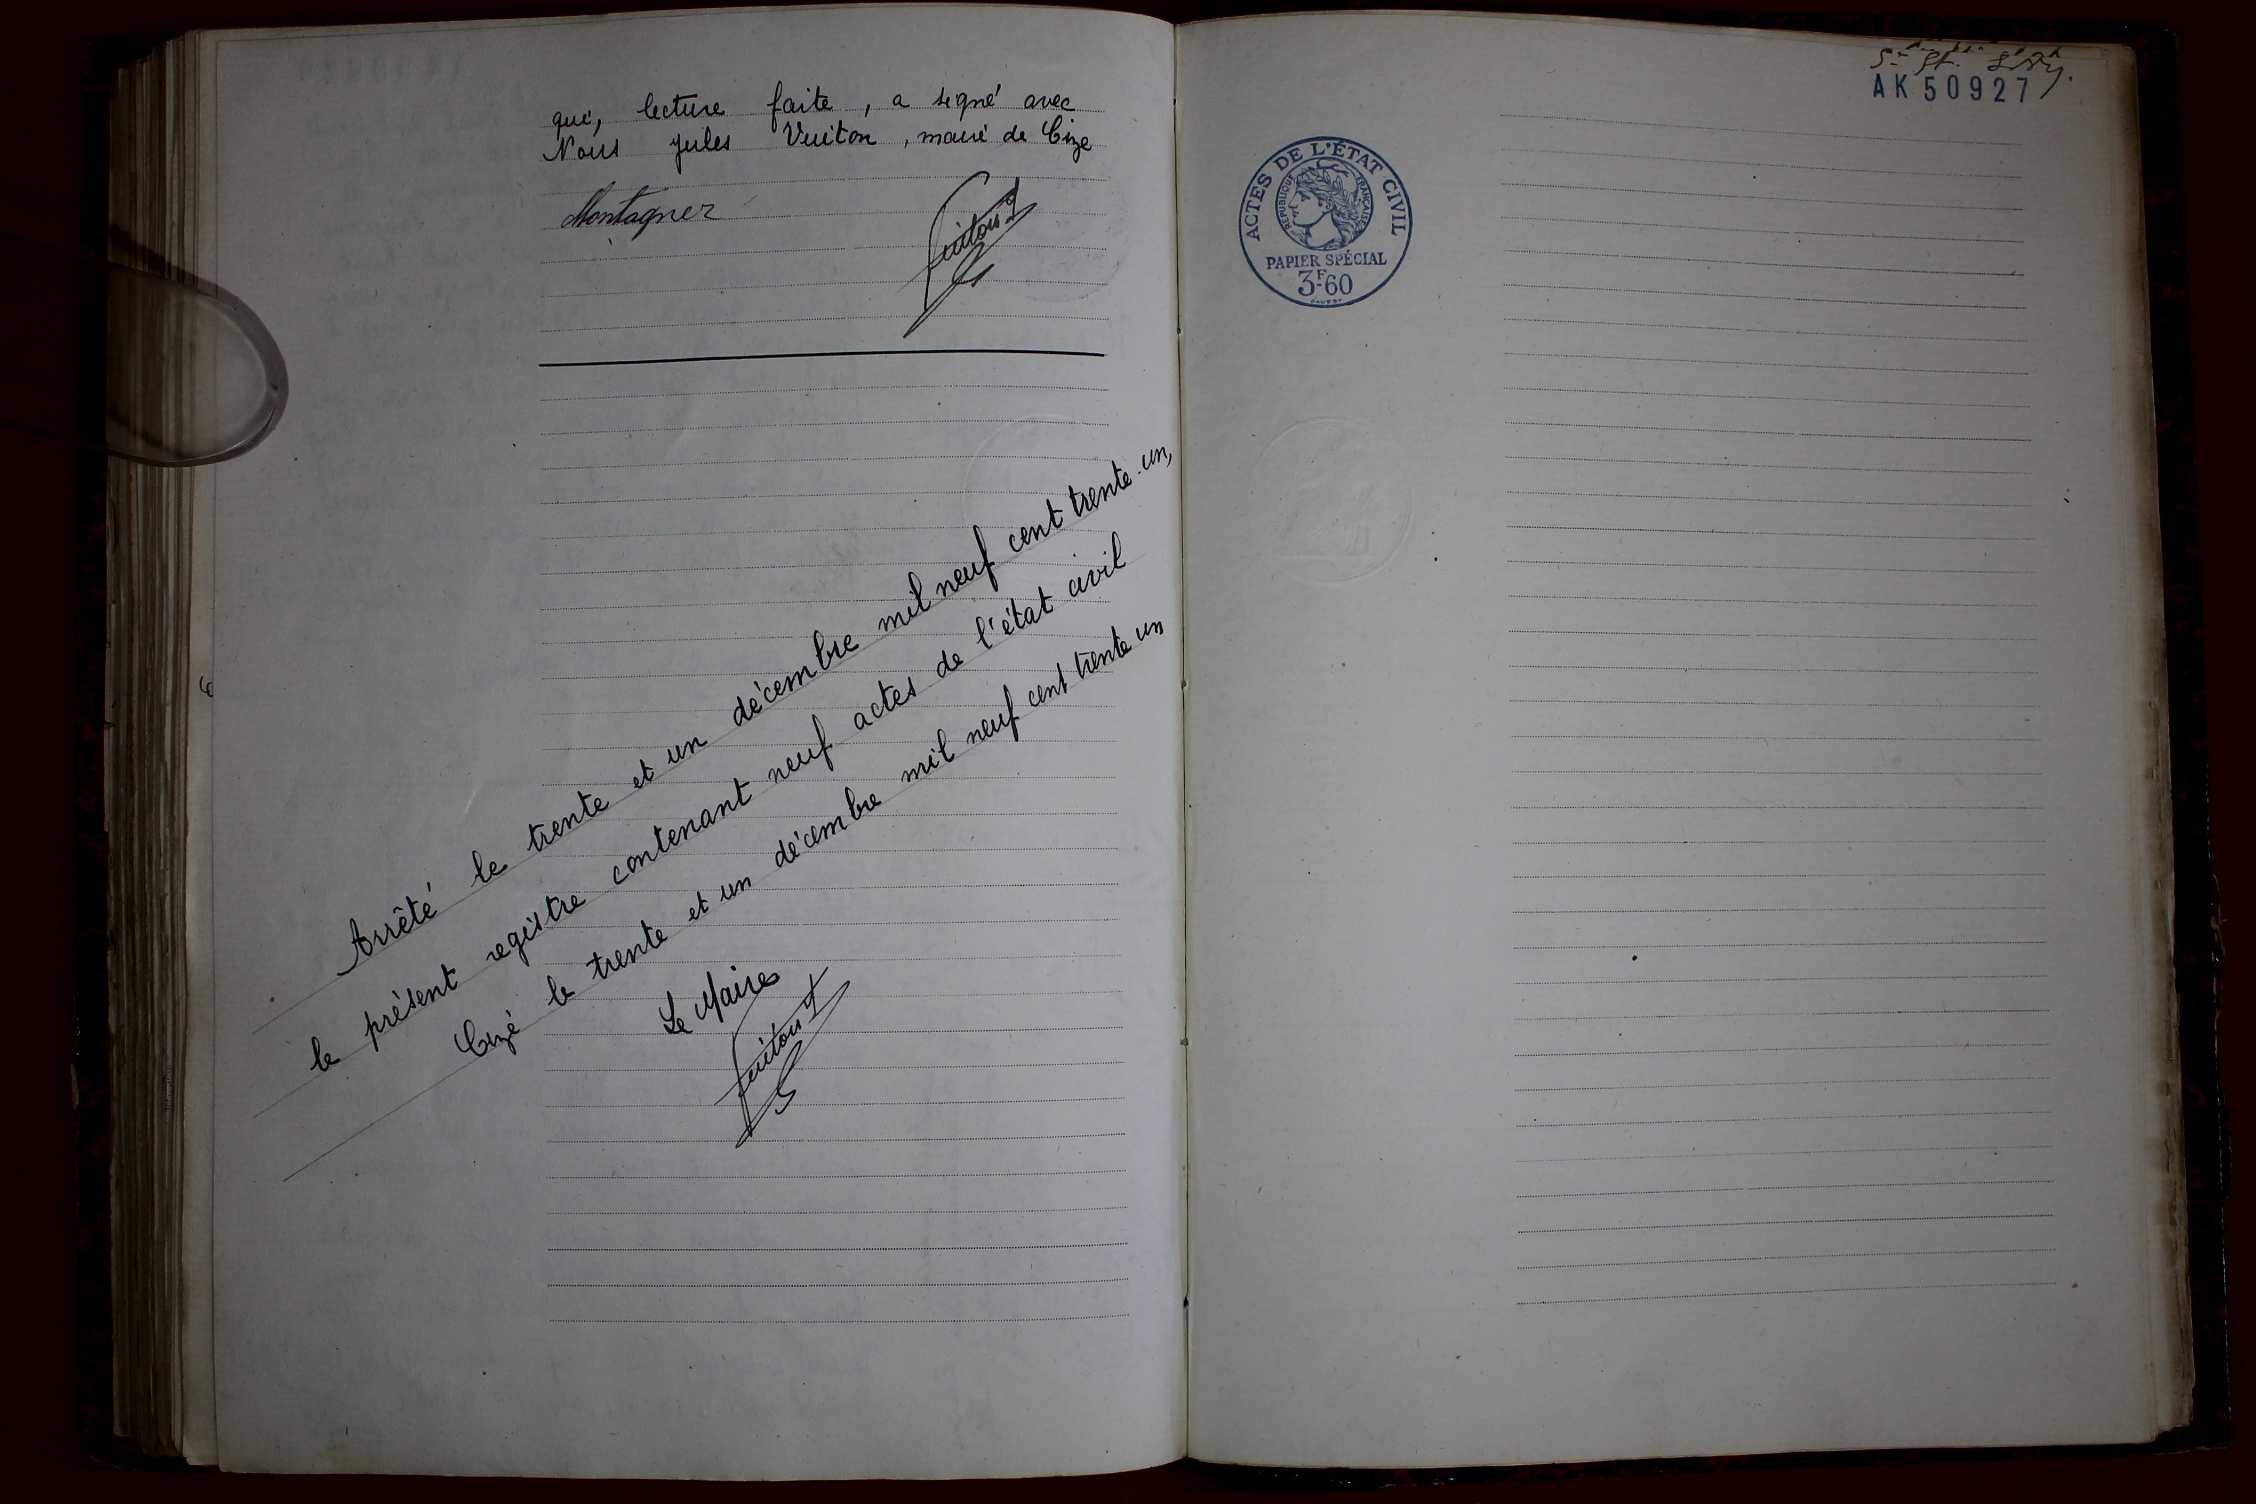 qui, lecture faite, a signé avec
Nous Jules Vuiton, maire de Cize
Montagner
Vuiton J
Arrêté le trente et un décembre mil neuf cent trente-un,
le présent registre contenant neuf actes de l'état civil
Cize le trente et un décembre mil neuf cent trente un
Le Maire
Vuiton J
AK 50927
ACTES DE L'ÉTAT CIVIL
RÉPUBLIQUE FRANÇAISE
PAPIER SPÉCIAL
3F.60